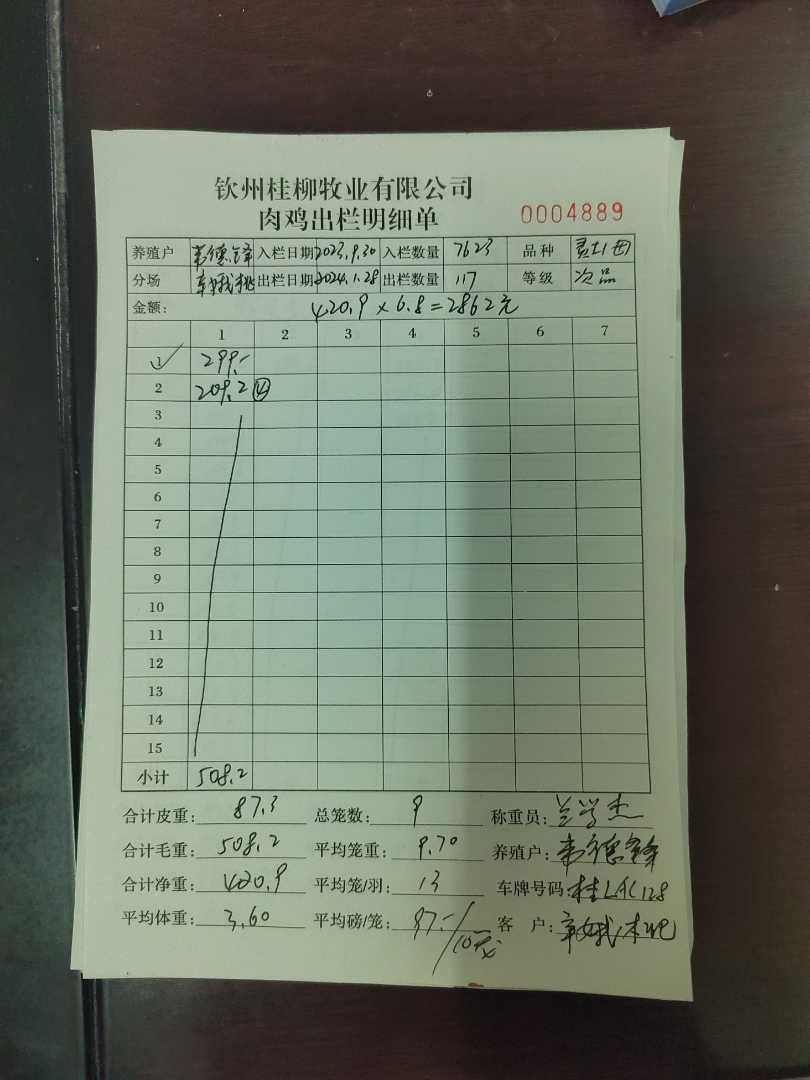 钦州桂柳牧业有限公司
肉鸡出栏明细单 0004889
养殖户 韦德锋 入栏日期 2023.9.30 入栏数量 7623 品种
分场 出栏日期 2024.1.28 出栏数量 117 等级 次品
金额: 420.9 × 6.8 = 2862元
1 2 3 4 5 6 7
1 299.-
2 209.2 ④
3
4
5
6
7
8
9
10
11
12
13
14
15
小计 508.2
合计皮重: 87.3 总笼数: 9 称重员: 兰学杰
合计毛重: 508.2 平均笼重: 9.70 养殖户: 韦德锋
合计净重: 420.9 平均笼/羽: 13 车牌号码:
平均体重: 3.60 平均磅/笼: 97.-/10 客 户: